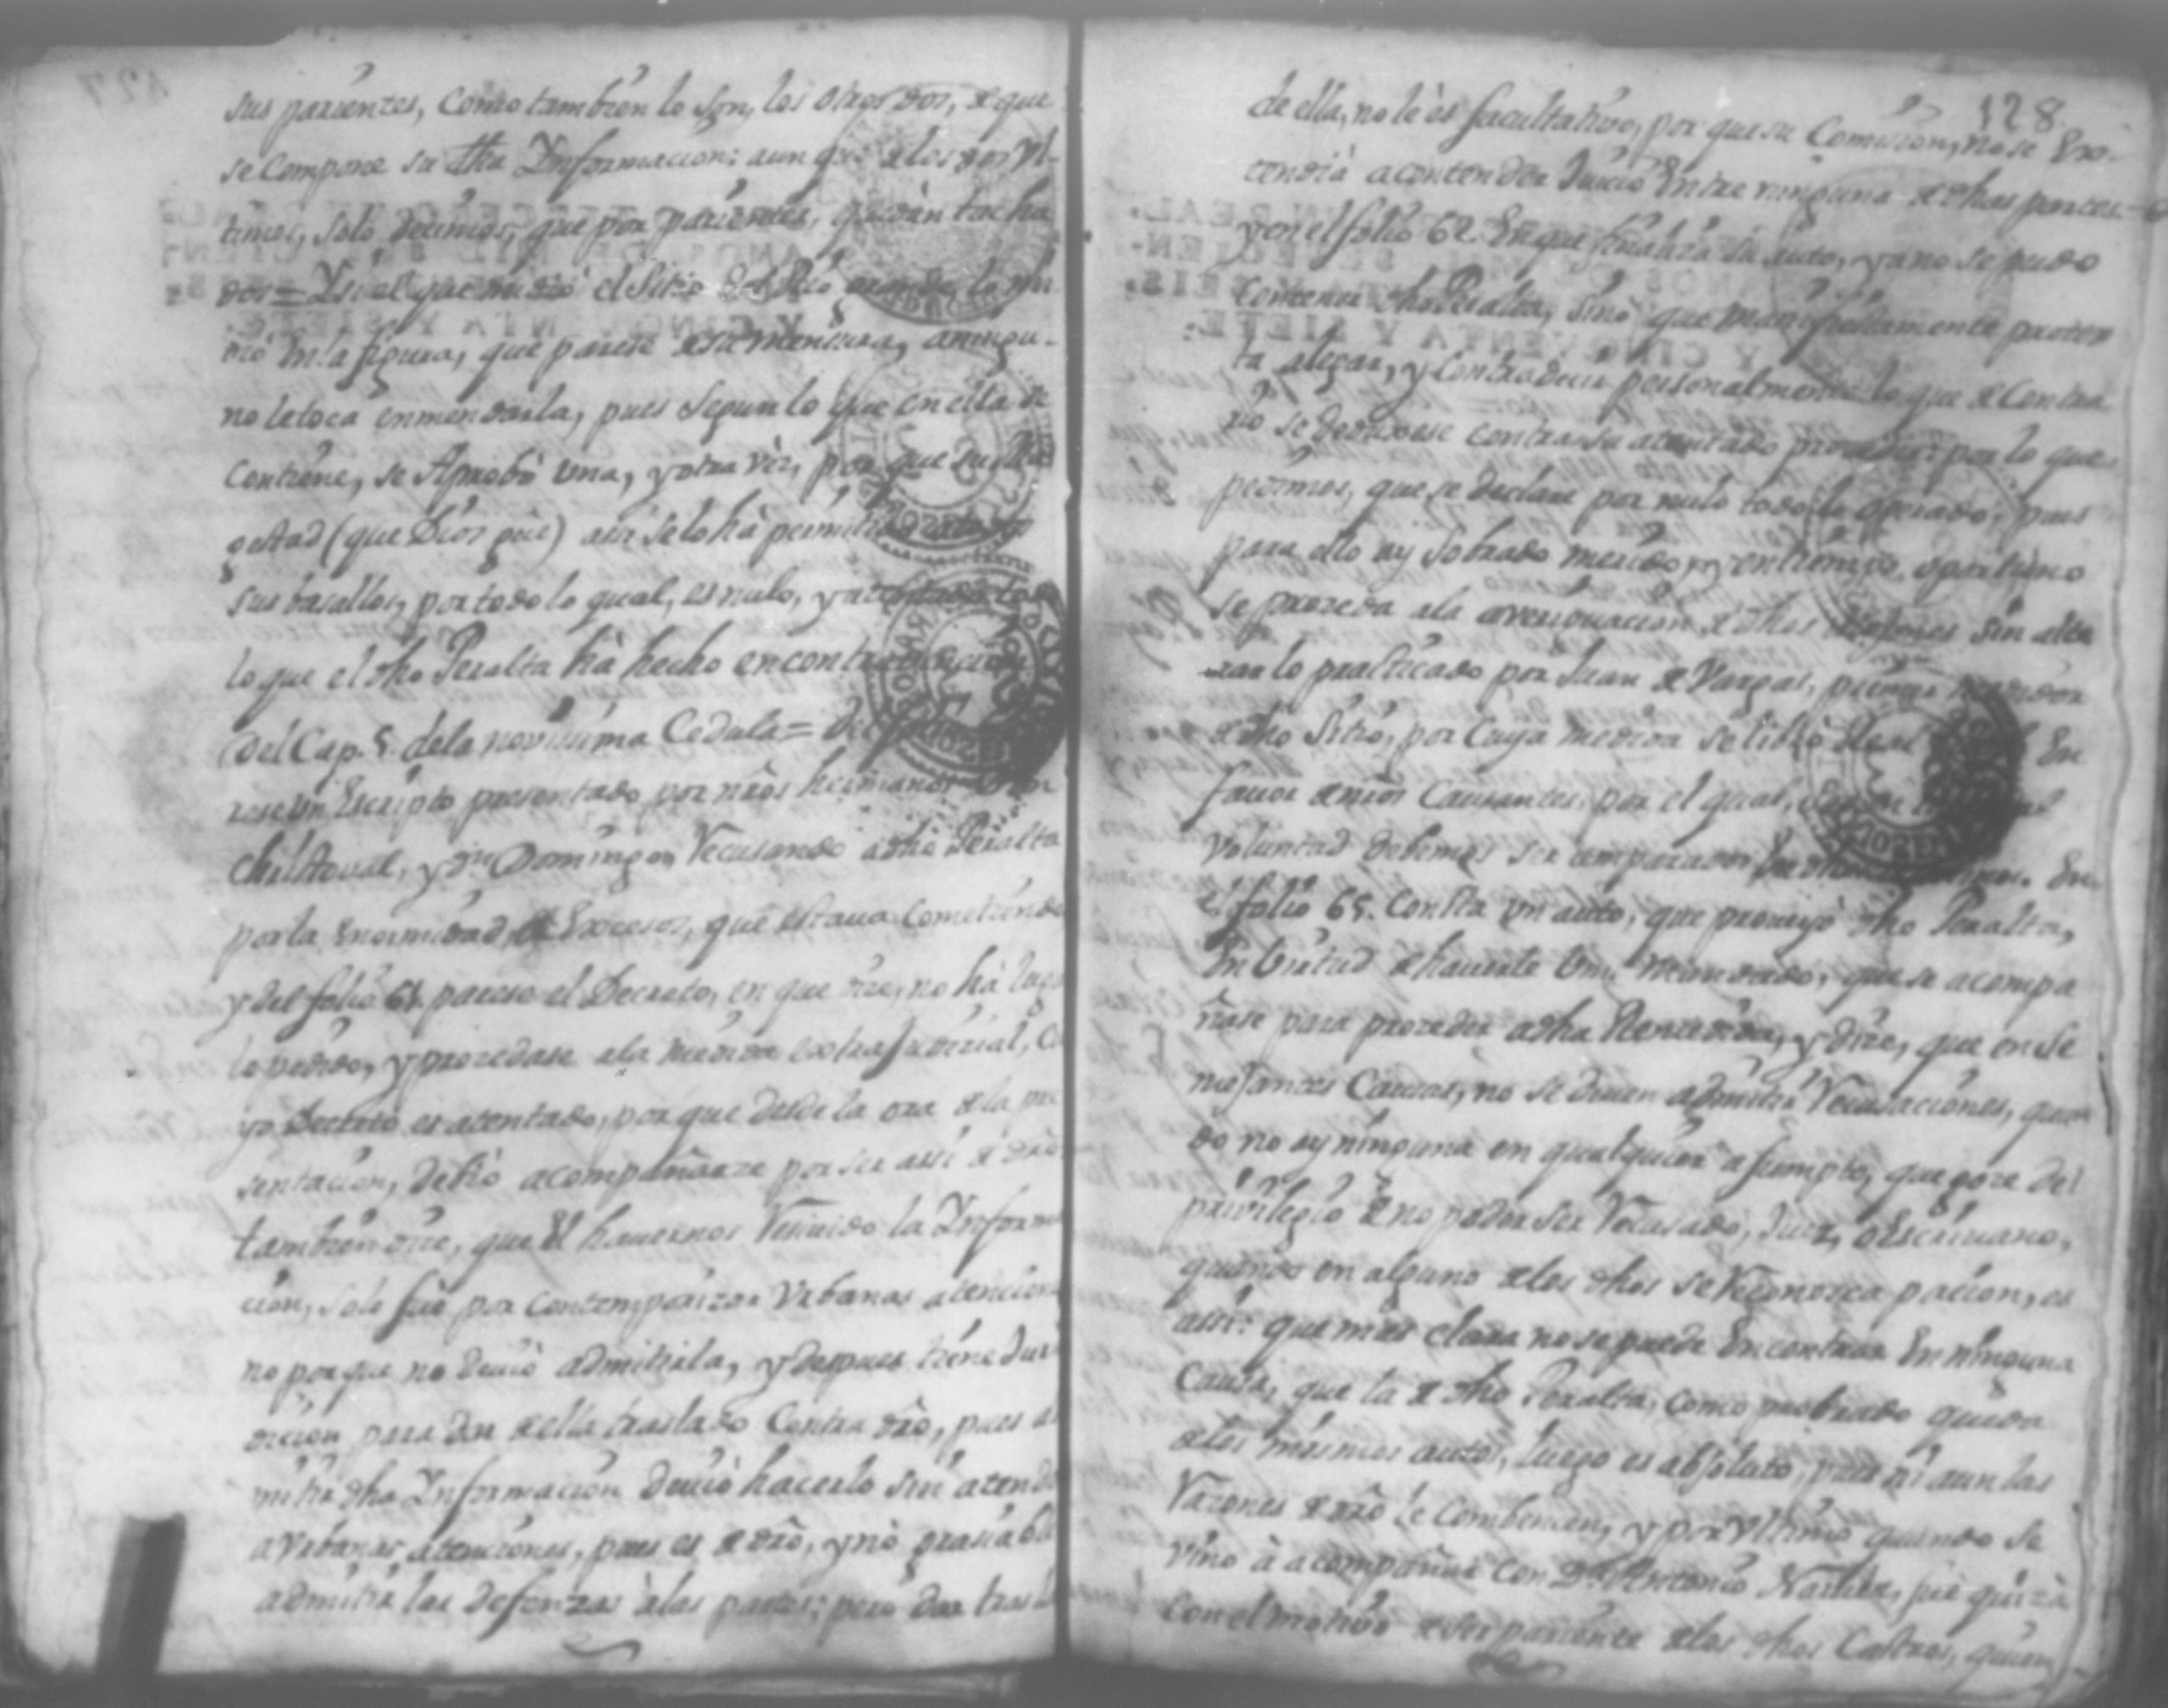 sus parientes, como tambien lo son, los otros dos, de que
se compone su dha Informacion: aun que a los dos Ul-
timos, solo decimos, que por parientes, quedan tacha
dos = Y si el que midió el Sitio del Rio grande lo mi
dió en la figura, que parese de su mensura, a ningu-
no le toca enmendarla, pues segun lo que en ella se
contiene, se Aprobò una, y otra vèz, por que su Ma
gestad (que Dios gũe) assi se lo hà permitido
sus basallos, por todo lo qual, es nulo, y atentado to
lo que el dho Peralta hà hecho en contravencion
del Cap. 5. de la novissima Cedula =
rese un Escripto presentado por nr̃os hermanos
Christoval, y Dn Domingo, Recusando a dho Peralta
por la enormidad de Excesos, que estava cometiendo
y del folio 61. parese el Decreto, en que dize, no hà lugar
lo pedido, y procedase a la medida extrajudicial, Cu
yo Decreto es atentado, por que desde la ora de la pre
sentacion, debiò acompañarze por ser assi de dr̃o
tambien dize, que el havernos Reciuido la Informa
cion, solo fue por contemporizar Vrbanas atenciones
no por que no deuiò admitirla, y despues tiene Juris
diccion para dar de ella traslado contra dr̃o, pues ad
mitir dha Informacion deuiò hacerlo sin atender
a Vrbanas atenciones, pues es de dr̃o, y nò graciable
admitir las defenzas à las partes; pero dar trasla
128
de ella, no le ès facultativo, por que su Comision, no se Ex-
tendià a contender Juicio Entre ninguna de dhas partes
y en el folio 62. En que finaliza su auto, ya no se pudo
contener dho Peralta, sino que manifiestamente protes
ta alegar, y contradecir personalmente lo que de contra
rio se deduxese contra su atentado proceder: por lo que
pedimos, que se declare por nulo todo lo operado; pues
para ello ay sobrado merito, y en tiempo oportuno
se proceda a la averiguacion de dhos sin alte
rar lo practicado por Juan de Vargas, primer medidor
de dho Sitio, por cuya medida se librò En
favor de nr̃os Causantes, por el qual,
voluntad debemos ser amparados En
el folio 65. consta un auto, que proveyò dho Peralta,
En virtud de haverle Vm. mandado, que se acompa
ñase para proceder a dha Remedida, y dize, que en se
mejantes Causas, no se deuen admitir Recusaciones, quan
do no ay ninguna en qualquier assumpto, que goze del
privilegio de no poder ser Recusado, Juez, o Escriuano,
quando en alguno de los dhos se Reconozca pacion, es
assi: que mas clara no se puede Encontrar En ninguna
Causa, que la de dho Peralta, como probado queda
de los mismos autos, luego es absoluto, pues ni aun las
Razones de dr̃o le combencen, y por Ultimo quando se
vino à acompañar con Dn Antonio fue quizà
con el motivo de ser pariente de los dhos Castros, quien